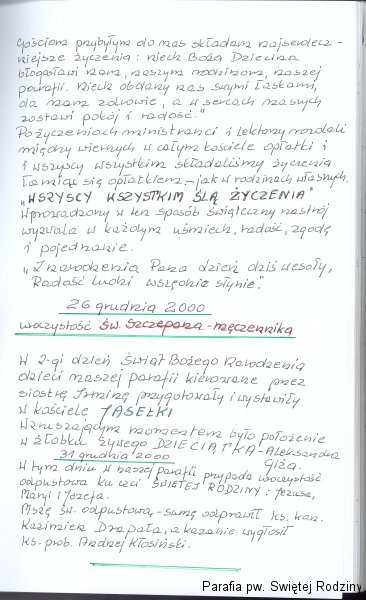 Gościom przybyłym do nas składam najserdecz-
niejsze życzenia: niech Boża Dziecina
błogosławi nam, naszym rodzinom, naszej
parafii. Niech obdarzy nas swymi łaskami,
da nam zdrowie, a w sercach naszych
zostawi pokój i radość."
Po życzeniach ministranci i lektorzy rozdali
między wiernych w całym kościele opłatki i
i wszyscy wszystkim składaliśmy życzenia
łamiąc się opłatkiem – jak w rodzinach własnych.
„WSZYSCY WSZYSTKIM ŚLĄ ŻYCZENIA"
Wprowadzony w ten sposób świąteczny nastrój
wyzwala w każdym uśmiech, radość, zgodę
i pojednanie.
„Z narodzenia Pana dzień dziś wesoły,
Radość ludzi wszędzie słynie".
26 grudnia 2000
uroczystość ŚW. Szczepana - męczennika
W 2-gi dzień Świąt Bożego Narodzenia
dzieci naszej parafii kierowane przez
siostrę Janinę przygotowały i wystawiły
w kościele JASEŁKI
Wzruszającym momentem było położenie
w żłobku żywego DZIECIĄTKA - Aleksandra
Giża.
31 grudnia 2000
W tym dniu w naszej parafii przypada uroczystość
odpustowa ku czci ŚWIĘTEJ RODZINY: Jezusa,
Maryi i Józefa.
Mszę św. odpustową - sumę odprawił ks. kan.
Kazimierz Drapała, a kazanie wygłosił
ks. prob. Andrzej Kłosiński.
Parafia pw. Swiętej Rodziny